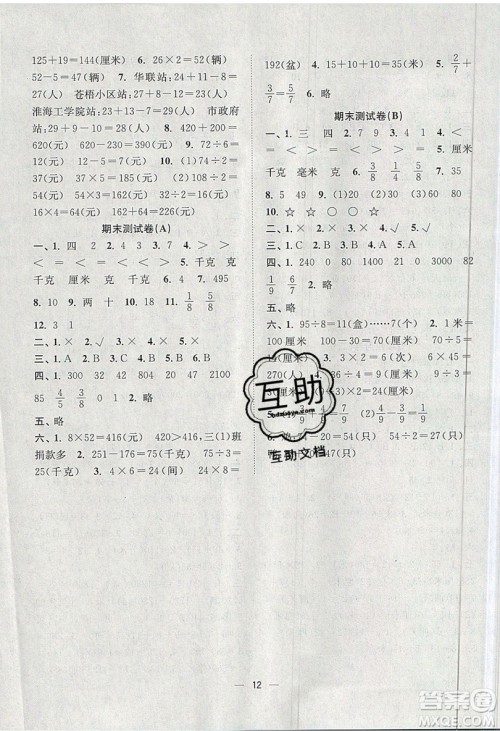 125+19=144(厘米) 6. 26×2=52(辆)
52-5=47(辆) 7. 华联站:24+11-8=
27(人) 苍梧小区站:24+13-8=29(人)
淮海工学院站:23+13-7=29(人) 市政府
站:29+10-11=28(人) 8. 420+200=
620(元) 620-230=390(元) 9. 12×6=
72(元) 12-5=7(元) 10. (1)74÷2=
37(元) 37×5=185(元) (2)108÷2=
54(元) 54×3=162(元) 32÷2=16(元)
16×4=64(元) 162+64=226(元)
期末测试卷(A)
一、1. 四 2 2. 7 3. > 4. > >
< = < < > < = 5. 千克 克
千克 厘米 克 千克 6. 4 7. 495
8. 10 9. 两 十 10. 18 11. 1/8 5/8
12. 3 1
二、1. × 2. ✓ 3. × 4. × 5. ×
三、1. A 2. B 3. B 4. A 5. A
四、1. 300 1000 48 22 42 820
85 4/5 3/8 0 1 2. 略
五、略
六、1. 8×52=416(元) 420>416,三(1)班
捐款多 2. 251-176=75(千克) 75÷3=
25(千克) 3. 4×6=24(间) 24×8=
192(盆) 4. 15+10+10=35(米) 5. 2/7+
3/7=5/7 6. 略
期末测试卷(B)
一、1. 三 四 2. 7 9 3. 4 4. <
= < < > > < = 5. 厘米
千克 毫米 克 6. 3/8 1/4 5/9 7. 35
8. 5 49 9. (1)60 (2)3 60 80
10. ☆ ☆ ☆ ○
二、1. × 2. × 3. × 4. ✓ 5. ✓
四、1. 210 240 0 80 1400 2
1/9 6/7 2. 略
五、略
六、1. 95÷8=11(盒)……7(个) 2. 1米=
(厘米) 3. 3×2=6(次) 6×45=
270(人) 86-9= 36÷9=4
=54(只)
互助
互助文档
12
答案圈
MXQE.COM